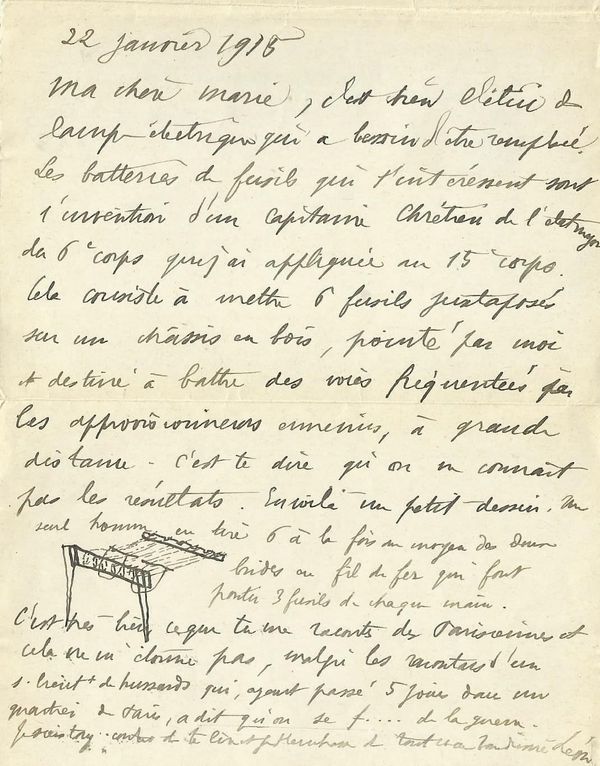 22 janvier 1915
Ma chère Marie, c'est bien de
lampe électrique qui a besoin d'être remplacé.
Les batteries de fusils qui t'intéressent sont
l'invention d'un capitaine Chrétien de l'
du 6e corps que j'ai appliquée au 15e corps.
Cela consiste à mettre 6 fusils juxtaposés
sur un châssis en bois, pointé par moi
et destiné à battre des voies fréquentées par
les approvisionneurs ennemis, à grande
distance - c'est te dire qu'on en connait
pas les résultats. En voilà un petit dessin. Un
seul homme en tire 6 à la fois au moyen des deux
brides en fil de fer qui font
partir 3 fusils de chaque main.
C'est très bien ce que tu me racontes des Parisiennes et
cela ne m'étonne pas, malgré les d'un
s. lieutt de hussards qui, ayant passé 5 jours dans un
quartier de Paris, a dit qu'on se f.... de la guerre.
de tout